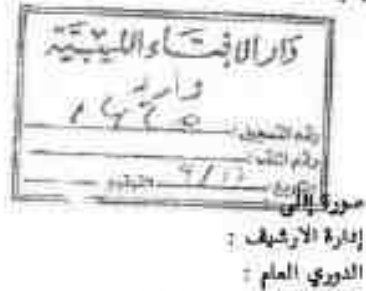 دار الإفتاء الليبية
وارد
رقم التسجيل:
رقم الملف:
التاريخ: التوقيع:
صورة إلى
إدارة الارشيف :
الدوري العام :